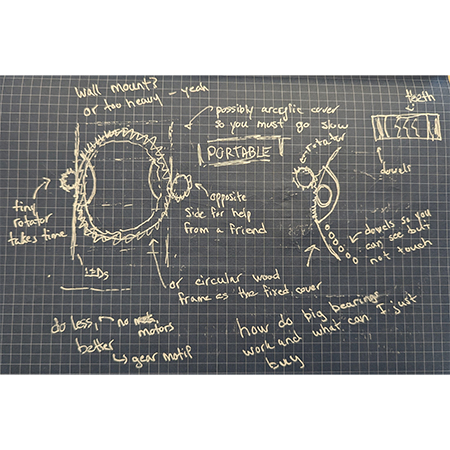 wall mount? - yeah
or too heavy
possibly arcrylic cover
so you must go slow
PORTABLE
teeth
rotator
dowels
tiny
rotator
takes time
opposite
side for help
from a friend
dowels so you
can see but
not touch
LEDs
or circular wood
frame as the fixed cover
do less, no
motors
better
gear motif
how do big bearings
work and what can I just
buy